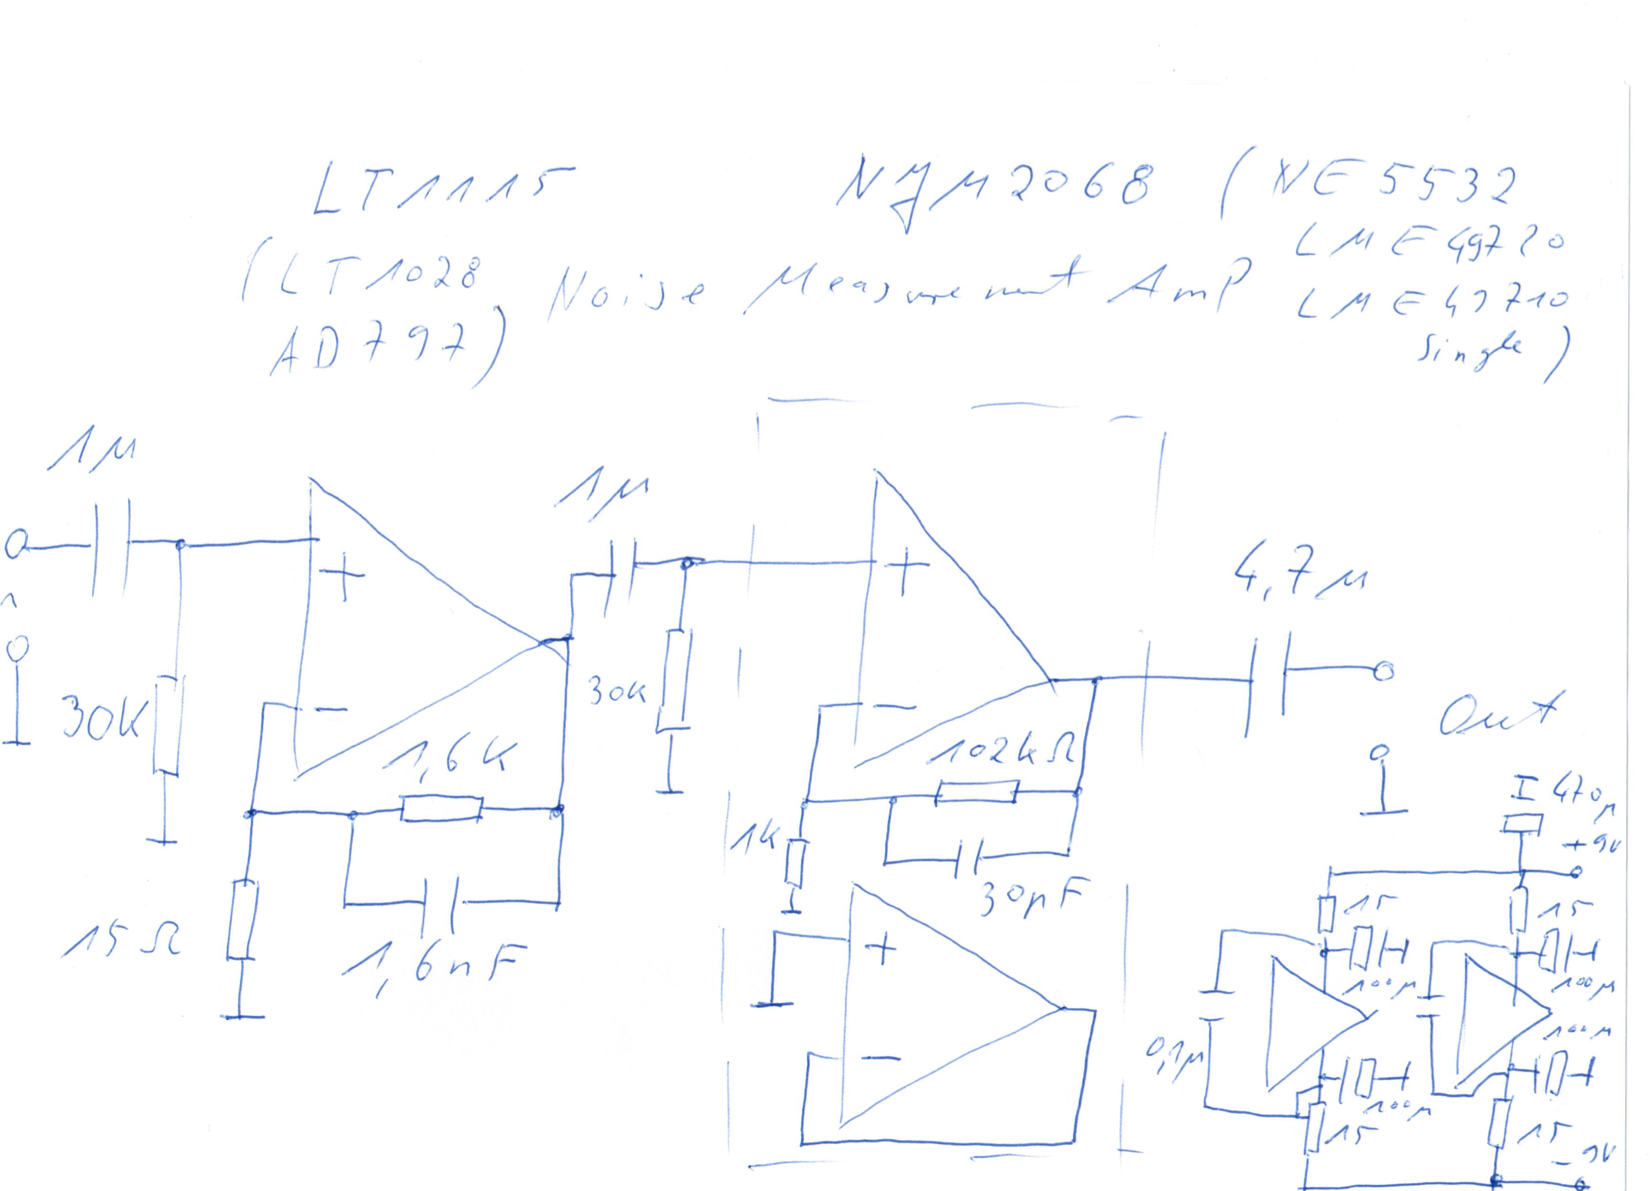 LT1115
NJM2068 (NE5532
LME49720
(LT1028
Noise Measurement Amp
LME49710
AD797)
single)
1µ
1µ
4,7µ
+
+
30K
30K
−
−
Out
1,6K
102kΩ
470µ
1k
+9V
30pF
15
15
15Ω
1,6nF
+
100µ
100µ
100µ
0,1µ
−
100µ
15
15
−9V